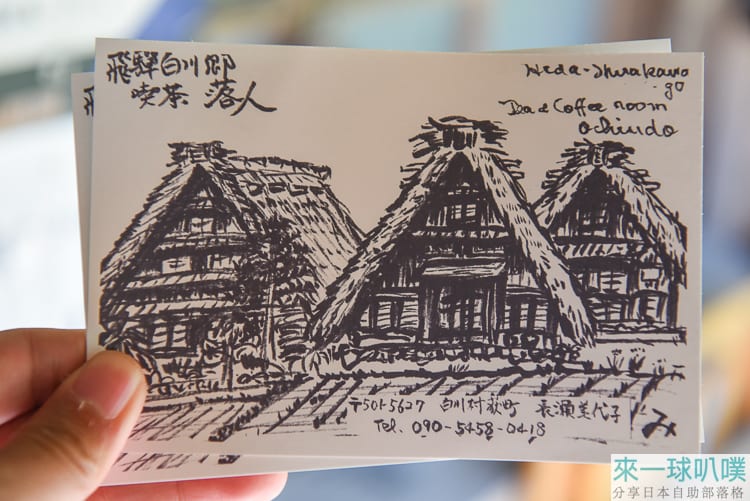 飛騨白川郷
喫茶 落人
Heda-Shirakawa
-go
Tea & Coffee room
ochiudo
〒501-5627 白川村荻町 長瀬美代子
Tel、090-5458-0418
み
來一球叭噗
分享日本自助部落格